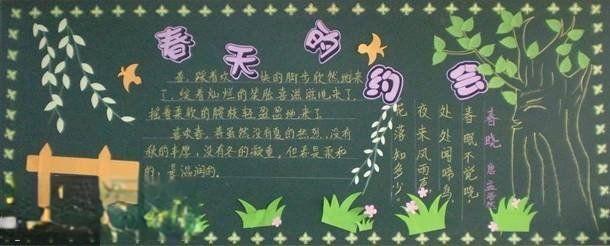 春天的约会
春,踩着欢快的脚步欣然地来
了,踩着灿烂的笑脸喜滋滋地来了,
摇着柔软的腰肢轻盈盈地来了。
喜欢春,春虽然没有夏的热烈,没有
秋的丰厚,没有冬的凝重,但春是柔和
的,是滋润的。
春晓 唐 孟浩然
春眠不觉晓,
处处闻啼鸟。
夜来风雨声,
花落知多少。